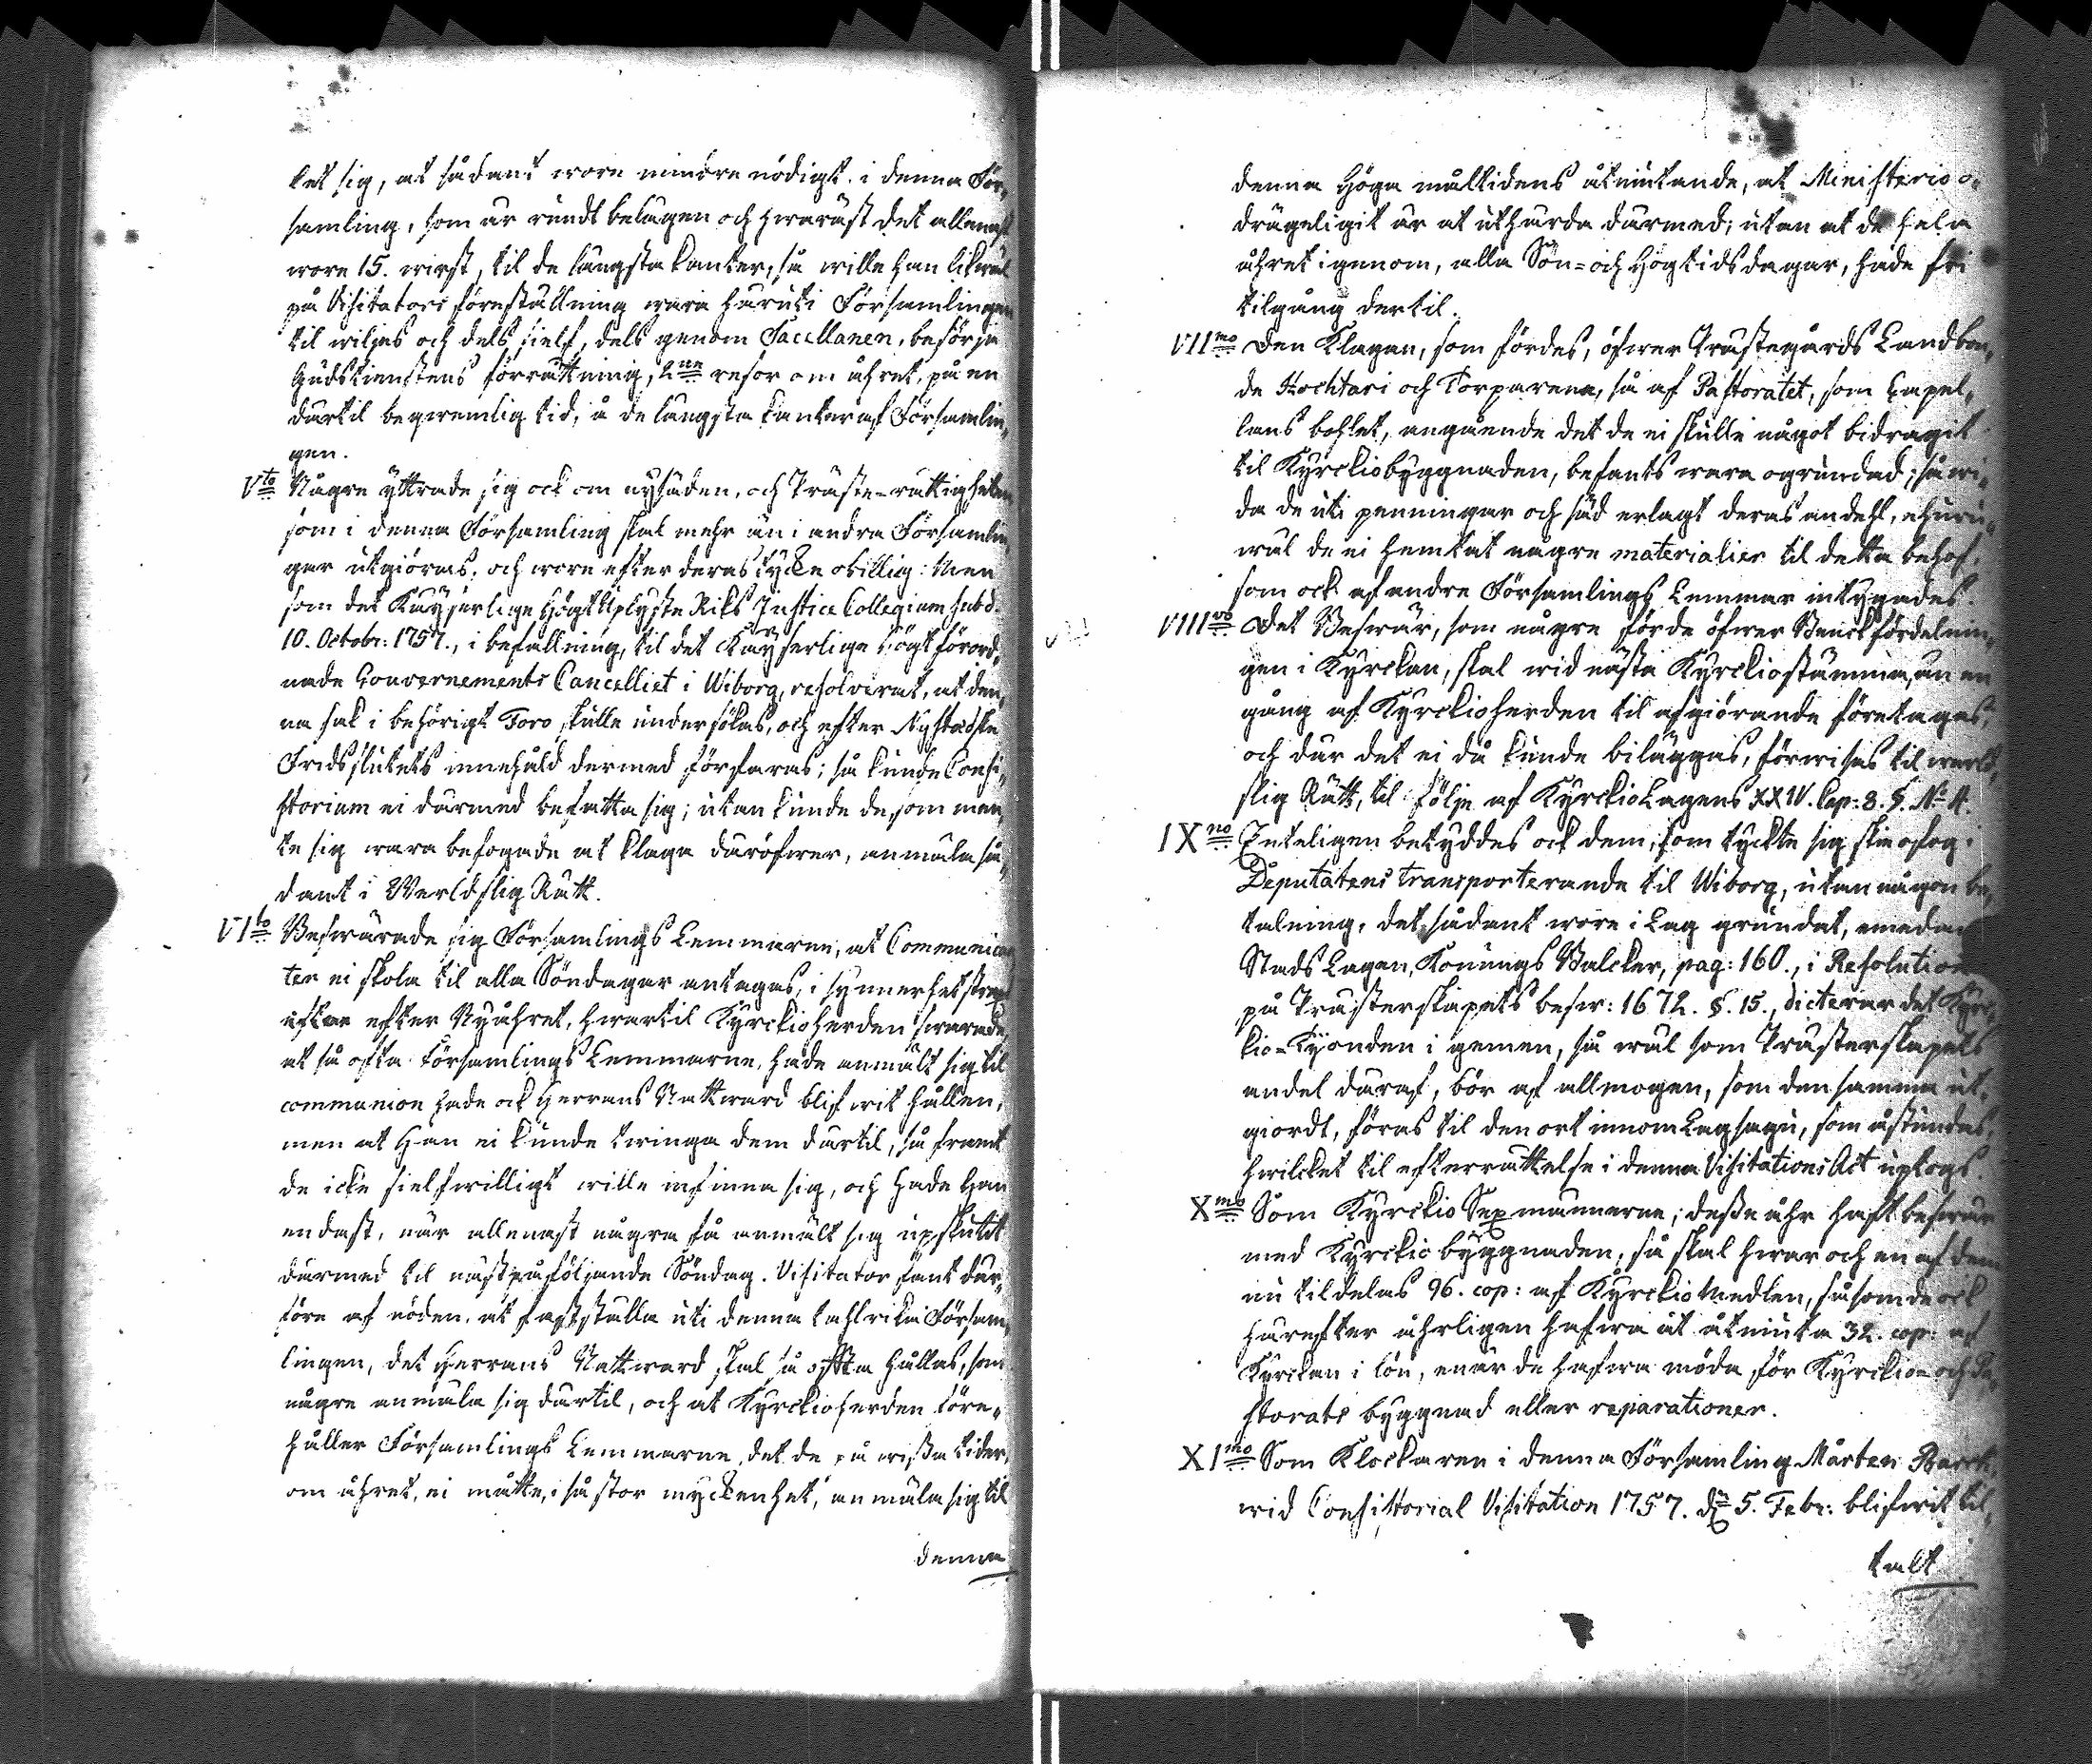 ket sig, at sådant wore mindre nödigt i denna För„
samling, som är rundt belägen och hwaräst det allenast
wore 15. wirst, til de längsta kanter, så wille han likwäl
på Visitators föreställning wara häruti Församlingen
til wiljes och dels sielf, dels genom Sacellanen, besörja
Gudstienstens förrättning, 2ne resor om åhret, på en
därtil beqwemlig tid, å de längsta kanter af Församlin„
gen.
Vto Någre yttrade sig ock om nysäden, och Präste-rättigheten,
som i denna Församling skal mehr än i andra Församlin„
gar utgiöras, och wore efter deras tycke obillig: Men
som det Kayserlige Högt Uplyste Riks Justice Collegium sub d.
10. Octobr: 1757., i befallning, til det Kayserlige högt förord„
nade Gouvernements Cancelliet i Wiborg, resolverat, at den„
na sak i behörigt Foro skulle undersökas, och efter Nystadske
Fridsslutets innehåld dermed förfaras; så kunde Consi„
storium ei därmed befatta sig; utan kunde de, som men„
te sig wara befogade at klaga däröfwer, anmäla så„
dant i Werldslig Rätt.
VIto Beswärade sig Församlings Lemmarne, at Communican„
ter ei skola til alla Söndagar antagas, i synnerhet strax
efter Nyåhret, hwartil Kyrckioherden swarade,
at så ofta Församlings Lemmarne, hade anmält sig til
communion hade ock Herrans Nattward blifwit hållen,
men at Han ei kunde twinga dem därtil, så framt
de icke sielfwilligt wille infinna sig, och hade Han
endast, när allenast några få anmält sig upskutit
därmed til nästpåföljande Söndag. Visitator fant där„
före af nöden, at fastställa uti denna talrika Försam„
lingen, det Herrans Nattward skal så offta hållas, som
någre anmäla sig därtil, och at Kyrckioherden före„
håller Församlings Lemmarne, det de på wissa tider
om åhret, ei måtte, i så stor myckenhet, anmäla sig til
denna
denna Höga måltidens åtniutande, at Ministerio o„
drägeligit är at uthärda därmed; utan at de hela
åhret igenom, alla Sön- och Högtidsdagar, hade fri
tilgång dertil.
VIImo Den Klagan, som fördes, öfwer Prästegårds Landbon„
de Hochtari och Torparena, så af Pastoratet, som Capel„
lans bohlet, angående det de ei skulle något bidragit
til Kyrckiobyggnaden, befants wara ogrundad; så wi„
da de uti penningar och säd erlagt deras andehl, ehuru„
wäl de ei hemtat några materialier til detta behof,
som ock af andre Församlings Lemmar intygades.
VIIIvo Det Beswär, som någre förde öfwer Bänckfördelnin„
gen i Kyrckan, skal wid nästa Kyrckiostämma, än en
gång af Kyrckioherden til afgiörande företagas,
och där det ei då kunde biläggas, förwisas til werld„
slig Rätt, til följe af KyrckioLagens XXIV. Cap: 8. §. No 4.
IXno Enteligen betyddes ock dem, som tyckte sig skie ofog i
Deputatens transporterande til Wiborg, utan någon be„
talning, det sådant wore i Lag grundat, emedan
Stads Lagen, Konungs Balcker, pag: 160., i Resolution
på Prästerskapets besw: 1672. §. 15., dicterar det Kyrc„
kio-Tyonden i gemen, så wäl som Prästerskapets
andel däraf, bör af allmogen, som den samma ut„
giordt, föras til den ort innom Lagsagu, som åstundas,
hwilcket til efterrättelse i denna Visitations Act uptogs.
Xmo Som Kyrckio Sexmännerne, desse åhr haft beswär
med Kyrckiobyggnaden, så skal hwar och en af dem
nu tildelas 96. cop: af KyrckioMedlen, så som de ock
härefter åhrligen hafwa at åtniuta 32. cop: af
Kyrckan i lön, enär de hafwa möda för Kyrckio- och Pa„
storats byggnad eller reparationer.
XImo Som Klockaren i denna Församling Mårten Barck,
wid Consistorial Visitation 1757. dn 5. Febr: blifwit til„
talt